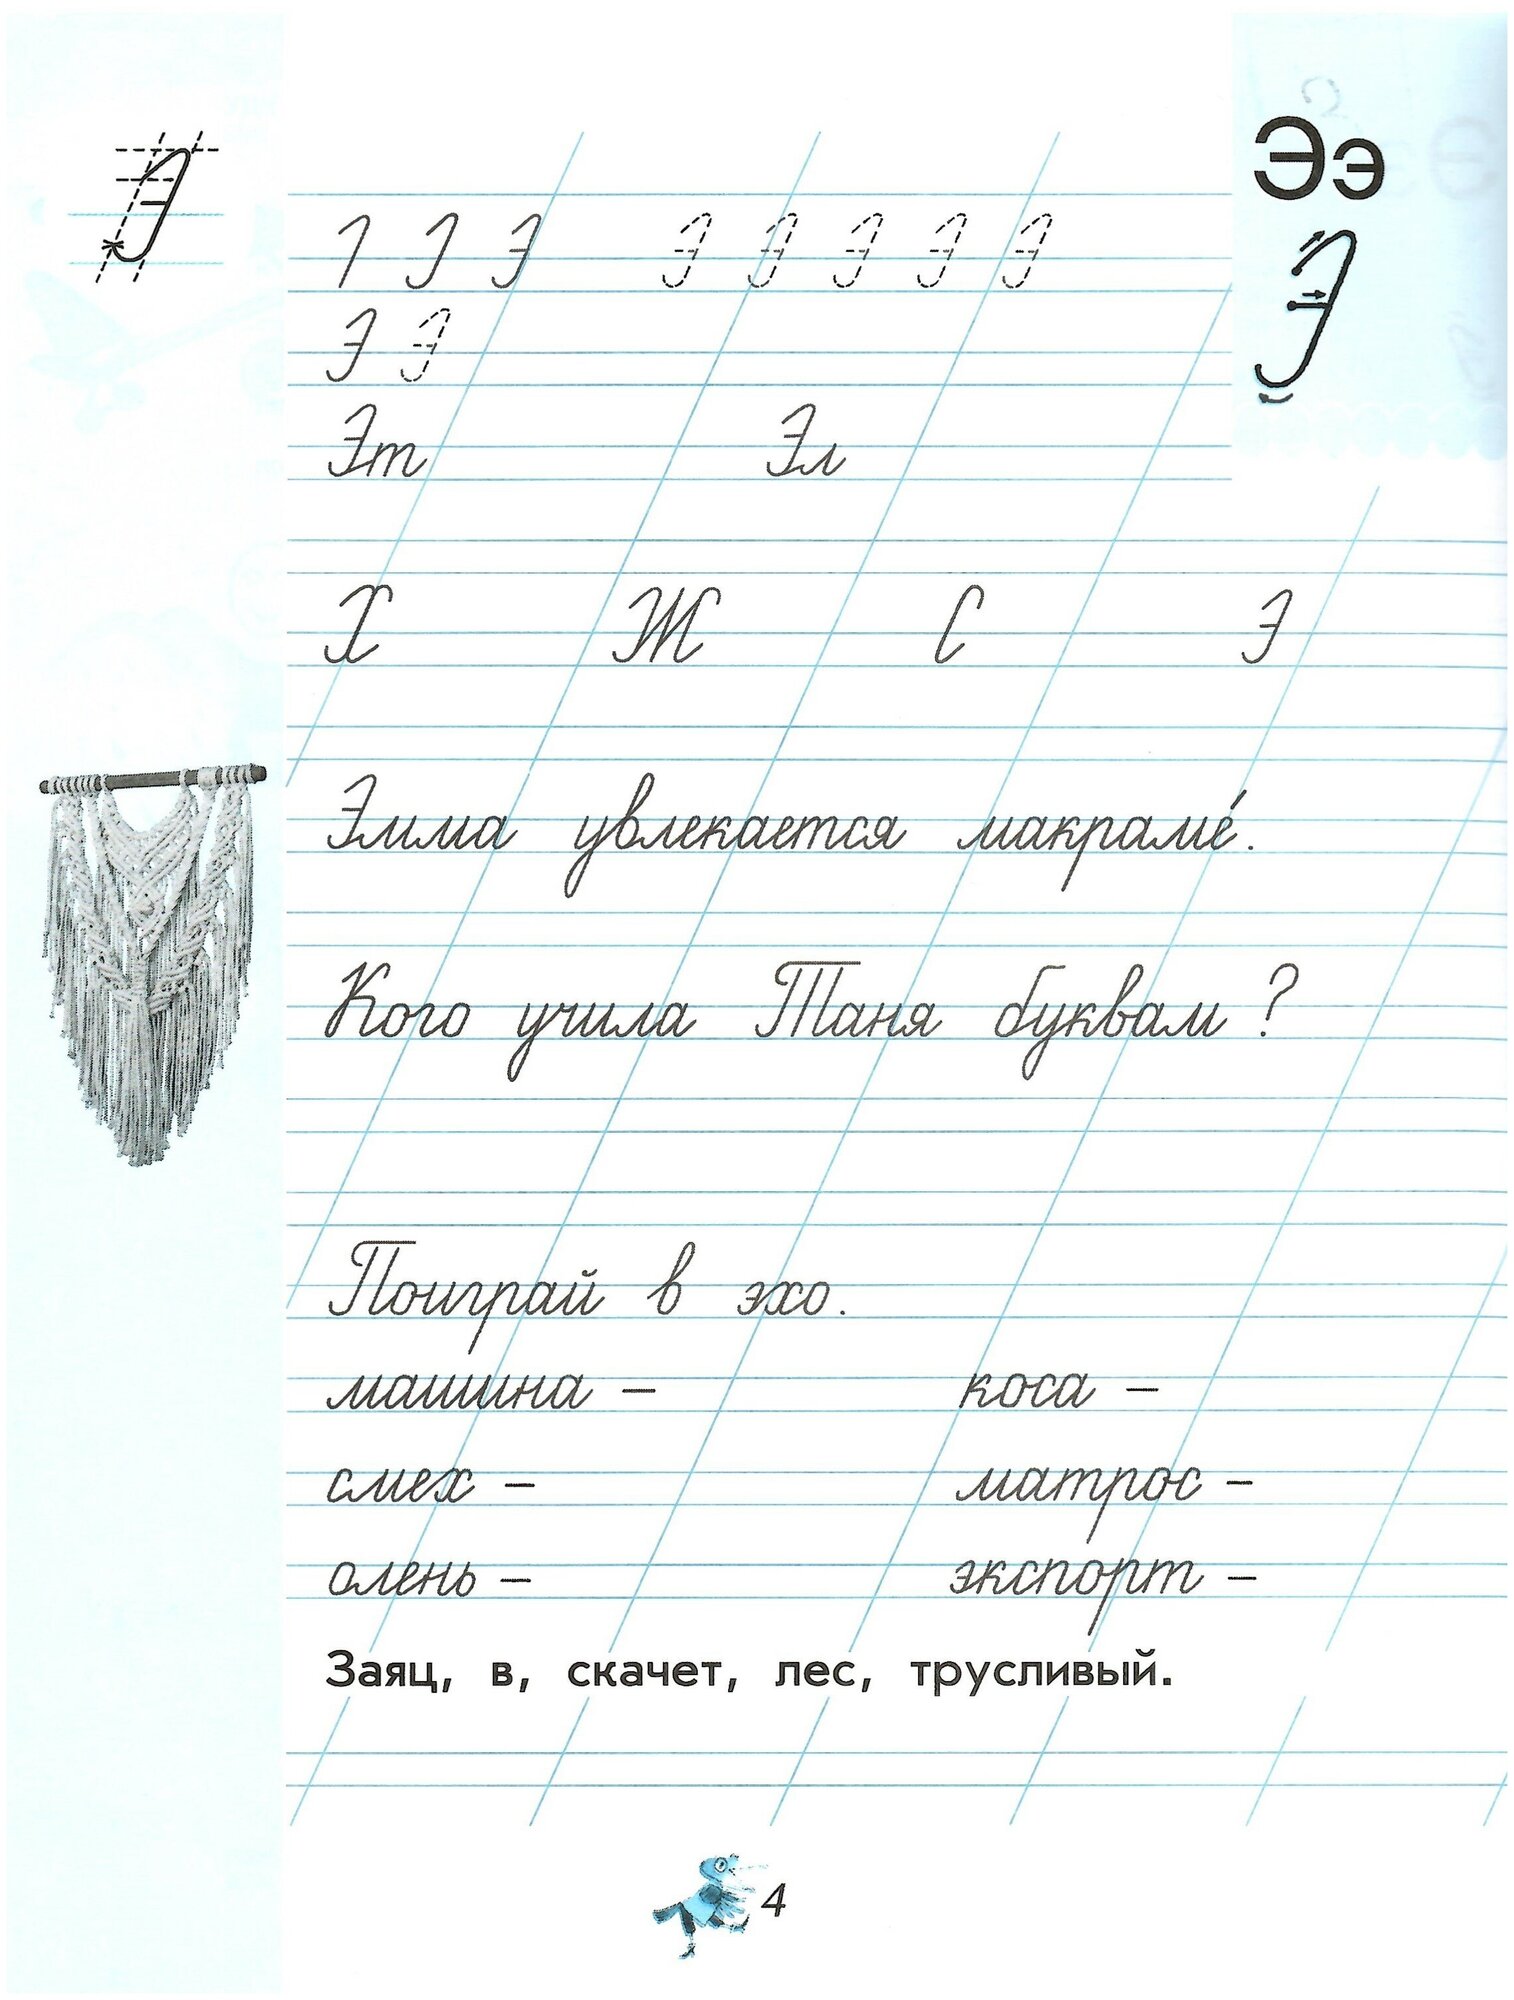 Ээ
Э
Э
Э Э Э Э Э Э
Э Э
Эт Эл
Х Ж С Э
Эмма увлекается макраме́.
Кого учила Таня буквам?
Поиграй в эхо.
машина – коса –
смех – матрос –
олень – экспорт –
Заяц, в, скачет, лес, трусливый.
4